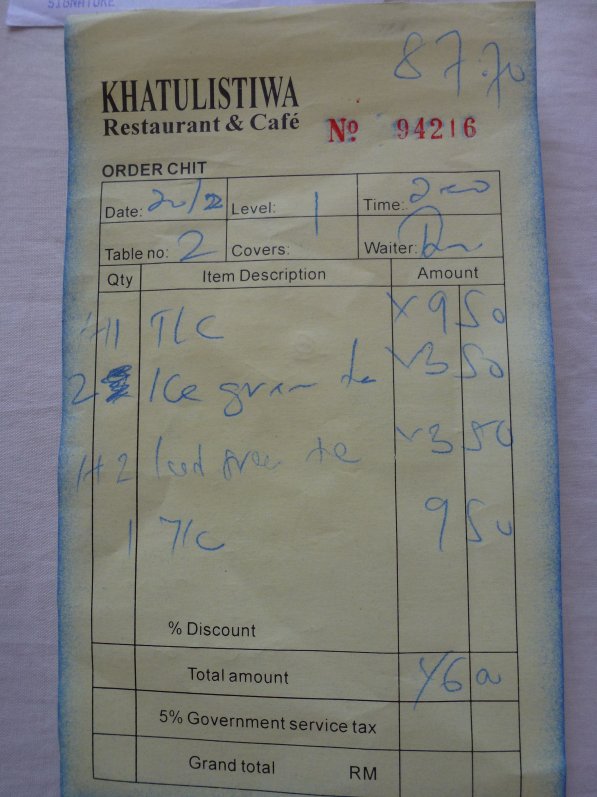 SIGNATURE
87.70
KHATULISTIWA
Restaurant & Café
Nº 94216
ORDER CHIT
Date: 20/2 Level: 1 Time:
Table no: 2 Covers: Waiter:
Qty Item Description Amount
1+1 T/C x 9 50
2 Ice green te x 3 50
1+2 Iced green te x 3 50
1 T/C 9 50
% Discount
Total amount
5% Government service tax
Grand total RM